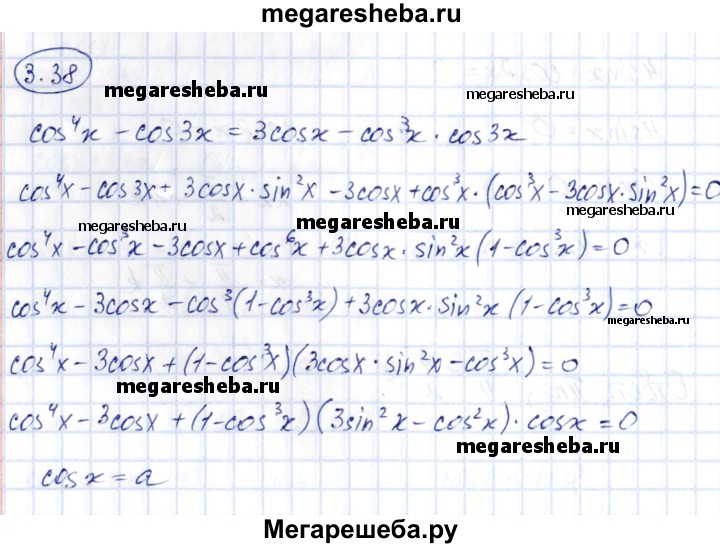 megaresheba.ru
3.38
megaresheba.ru
cos⁴x - cos3x = 3cosx - cos³x · cos3x
cos⁴x - cos3x + 3cosx · sin²x - 3cosx + cos³x · (cos³x - 3cosx · sin²x) = 0
megaresheba.ru
megaresheba.ru
megaresheba.ru
cos⁴x - cos³x - 3cosx + cos⁶x + 3cosx · sin²x (1 - cos³x) = 0
cos⁴x - 3cosx - cos³(1 - cos³x) + 3cosx · sin²x (1 - cos³x) = 0
megaresheba.ru
cos⁴x - 3cosx + (1 - cos³x)(3cosx · sin²x - cos³x) = 0
megaresheba.ru
cos⁴x - 3cosx + (1 - cos³x)(3sin²x - cos²x) · cosx = 0
megaresheba.ru
cosx = a
Мегарешеба.ру